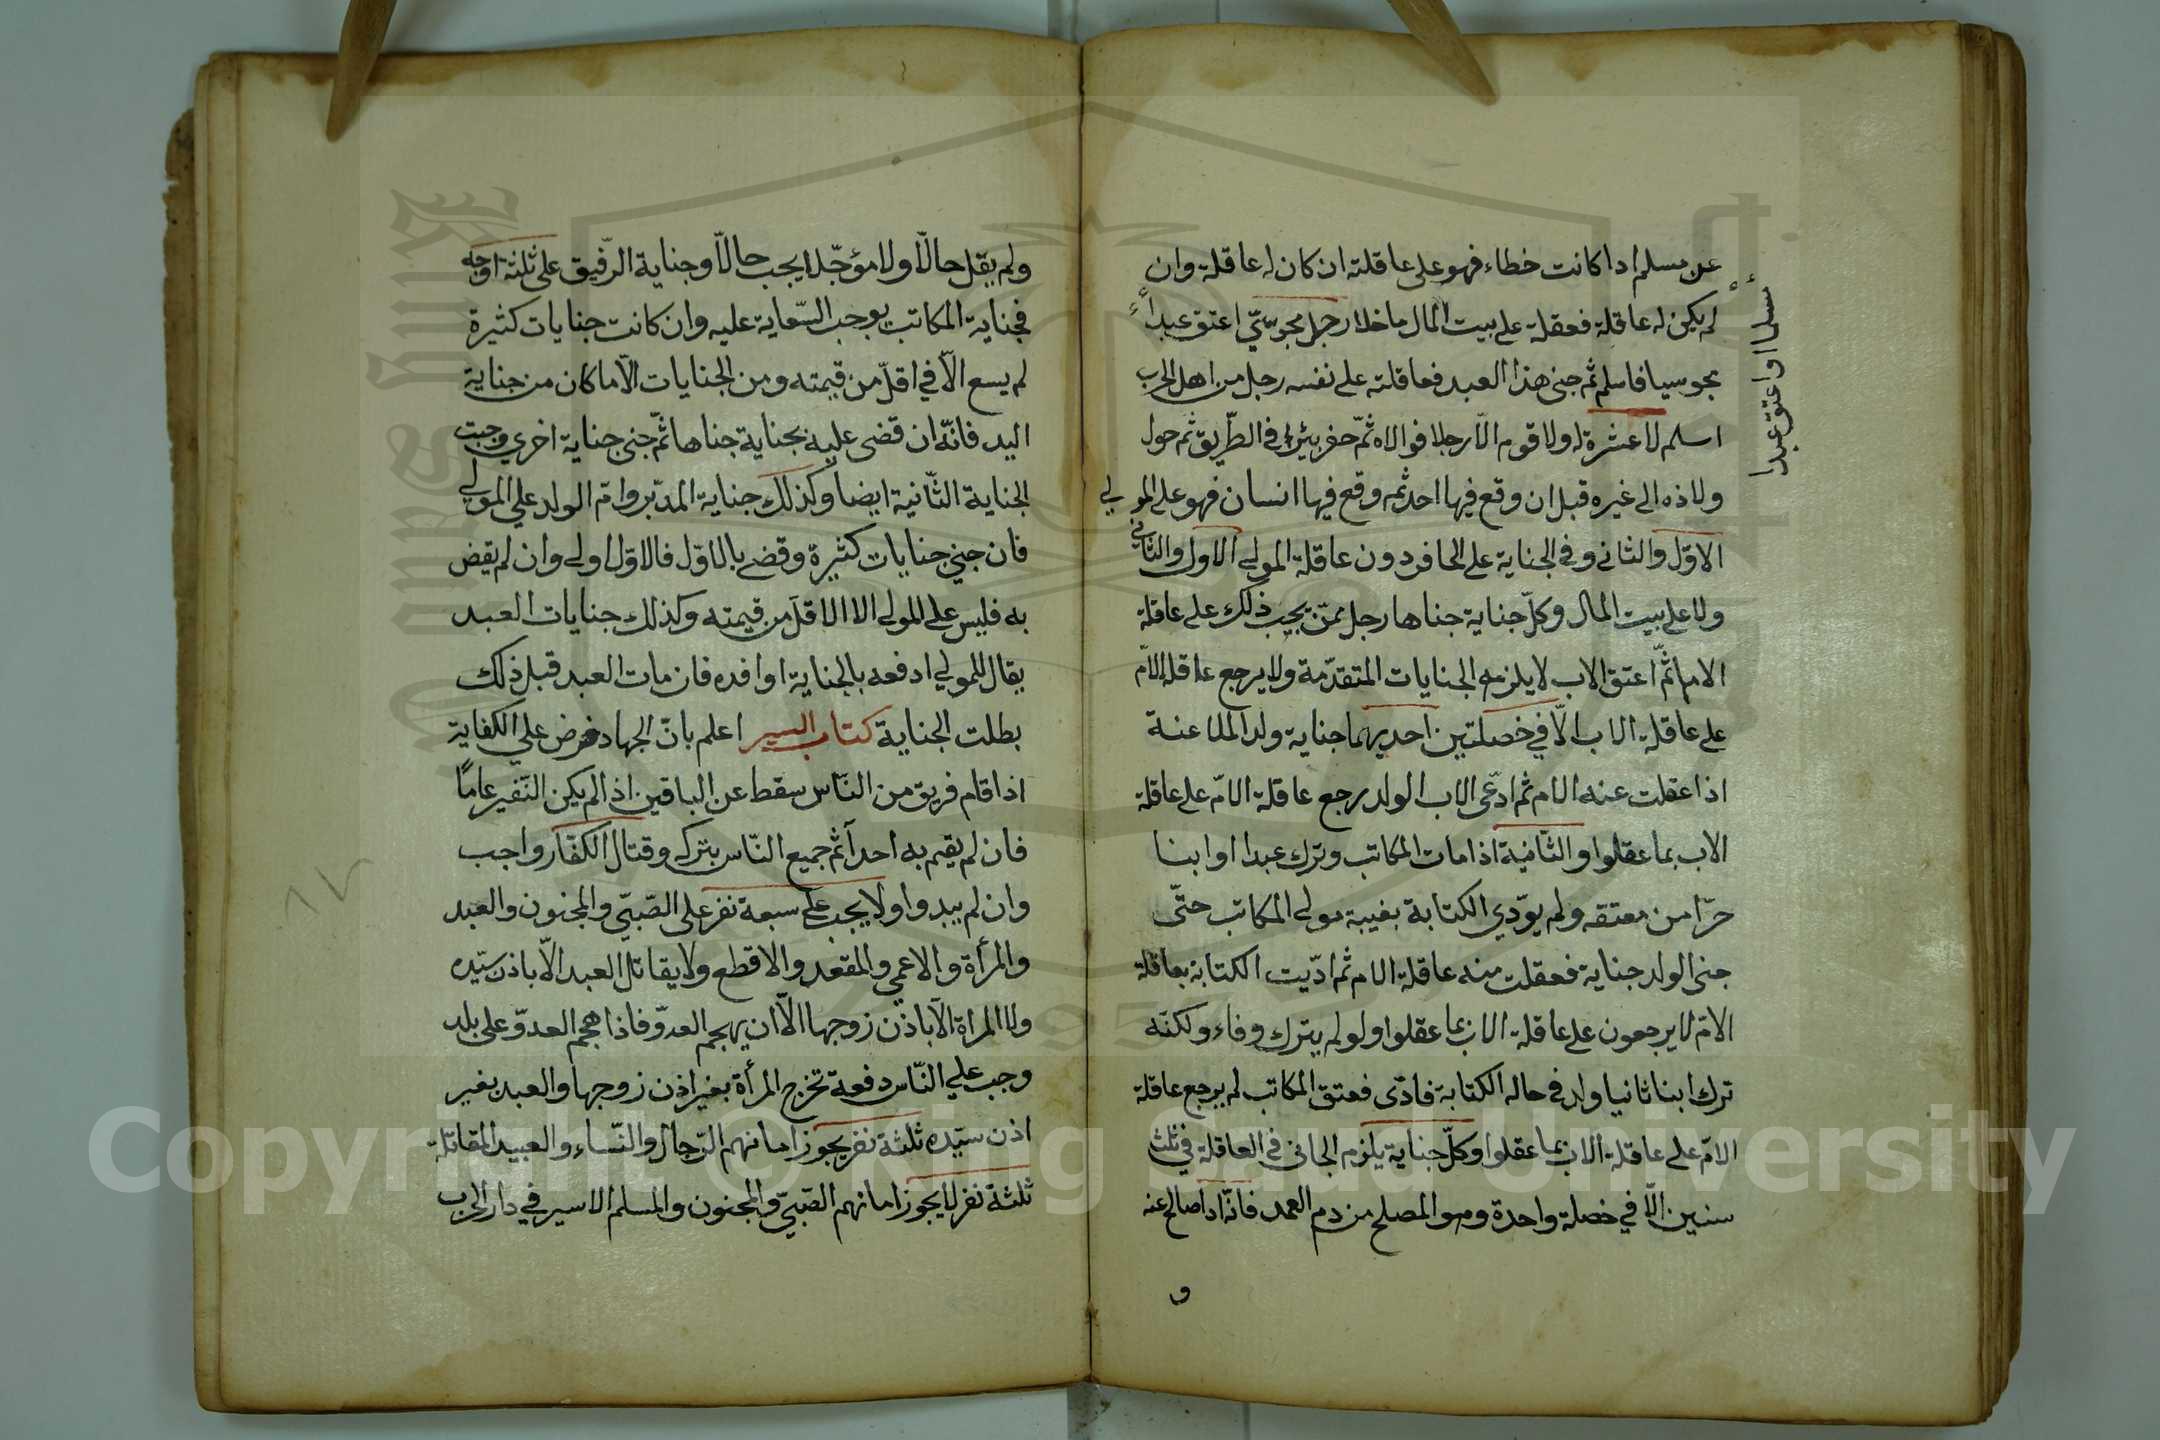 عن مسلم اذا كانت خطاء فهو على عاقلته ان كان له عاقلة وان
لم يكن له عاقلة فعقلة على بيت المال ما خلا رجل مجوسيّ اعتق عبداً
مجوسيا فاسلم ثم جنى هذا العبد فعاقلته على نفسه رجل من اهل الحرب
اسلم لا عشرة له ولا قوم الّا رجلا فوالاه ثمّ حفر بئرا في الطّريق ثم حول
ولاءه الى غيره قبل ان وقع فيها احد ثم وقع فيها انسان فهو على المولى
الاوّل والثاني وفي الجناية على الحافر دون عاقلة المولى الاول والثّاني
ولا على بيت المال وكلّ جناية جناها رجل ممّن يجب ذلك على عاقلة
الام ثمّ اعتق الاب لا يلزمه الجنايات المتقدّمة ولا يرجع عاقلة الامّ
على عاقلة الاب الّا في خصلتين احديهما جناية ولد الملاعنة
اذا عقلت عنه الام ثم ادّعى الاب الولد رجع عاقلة الامّ على عاقلة
الاب بما عقلوا والثّانية اذا مات المكاتب وترك عبدا او ابنا
حرّا من معتقه ولم يودّي الكتابة بغيبة مولى المكاتب حتّى
جنى الولد جناية فعقلت منه عاقلة الام ثم ادّيت الكتابة بعاقلة
الامّ لا يرجعون على عاقلة الاب بما عقلوا ولو لم يترك وفاء ولكنّه
ترك ابنا ثانيا ولد في حاله الكتابة فادّى فعتق المكاتب لم يرجع عاقلة
الامّ على عاقلة الاب بما عقلوا وكلّ جناية يلزم الجاني في العاقلة في ثلث
سنين الّا في خصلة واحدة وهو المصلح من دم العمد فانّه اذا صالح عنه
و
اواعتق عبدا
ولم يقل حالّا ولا مؤجّلا يجب حالّا وجناية الرّقيق على ثلثة اوجه
فجناية المكاتب يوجب السّعاية عليه وان كانت جنايات كثيرة
لم يسع الّا في اقلّ من قيمته ومن الجنايات الّا ما كان من جناية
اليد فانّه ان قضى عليه بجناية جناها ثمّ جنى جناية اخرى وجبت
الجناية الثّانية ايضا وكذلك جناية المدبّر وامّ الولد على المولى
فان جنى جنايات كثيرة وقضى بالاوّل فالاوّل اولى وان لم يقض
به فليس على المولى الا الاقلّ من قيمته وكذلك جنايات العبد
يقال للمولى ادفعه بالجناية او افده فان مات العبد قبل ذلك
بطلت الجناية كتاب السير اعلم بانّ الجهاد فرض على الكفاية
اذا قام فريق من النّاس سقط عن الباقين اذ الم يكن النّفير عامّا
فان لم يقيم به احد آثم جميع النّاس بتركه وقتال الكفّار واجب
وان لم يبدوا ولا يجب على سبعة نفر على الصّبيّ والمجنون والعبد
والمرأة والاعمى والمقعد والاقطع ولا يقاتل العبد الّا باذن سيّده
ولا المراة الّا باذن زوجها الّا ان يهجم العدوّ فاذا هجم العدوّ على بلد
وجب على النّاس دفعة تخرج المرأة بغير اذن زوجها والعبد بغير
اذن سيّده ثلثة نفر يجوز امانهم الرّجال والنّساء والعبيد المقاتلة
ثلثة نفر لا يجوز امانهم الصّبيّ والمجنون والمسلم الاسير في دار الحرب
Copyright © King Saud University